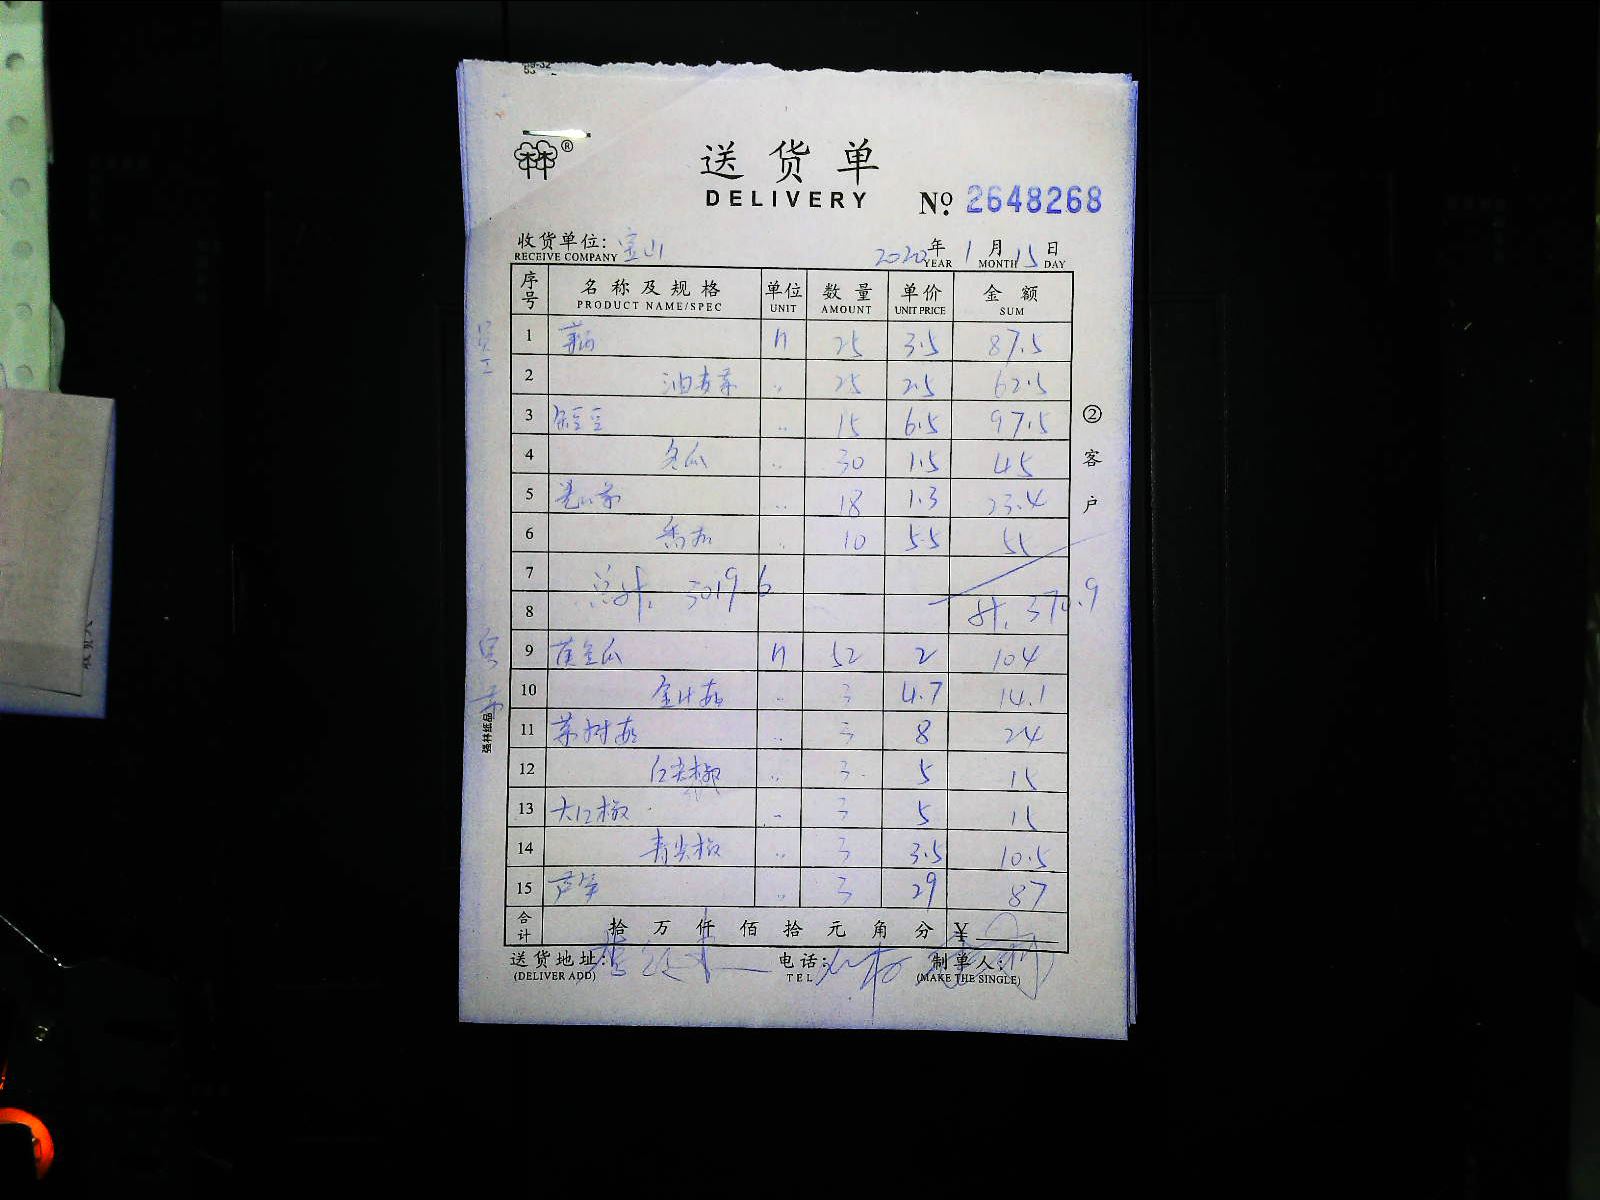 送货单
DELIVERY
No. 2648268
收货单位: 宝山 2020年 1月 15日
RECEIVE COMPANY YEAR MONTH DAY
序号 名称及规格 单位 数量 单价 金额
PRODUCT NAME/SPEC UNIT AMOUNT UNIT PRICE SUM
1 25 3.5 87.5
2 油麦菜 〃 25 2.5 62.5
3 豆 〃 15 6.5 97.5
4 冬瓜 〃 30 1.5 45
5 菜 〃 18 1.3 23.4
6 〃 10 5.5 55
7 总计. 3019.6
8 计. 370.9
9 黄金瓜 52 2 104
10 金针菇 〃 3 4.7 14.1
11 茶树菇 〃 3 8 24
12 红尖椒 〃 3 5 15
13 大红椒 〃 3 5 15
14 青尖椒 〃 3 3.5 10.5
15 芦笋 〃 3 29 87
合计 拾 万 仟 佰 拾 元 角 分 ¥
送货地址: 电话: 制单人:
(DELIVER ADD) TEL (MAKE THE SINGLE)
② 客户
强林纸品